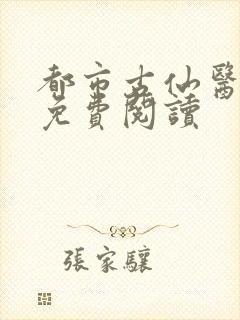 都市古仙醫
免費閱讀
張家驤